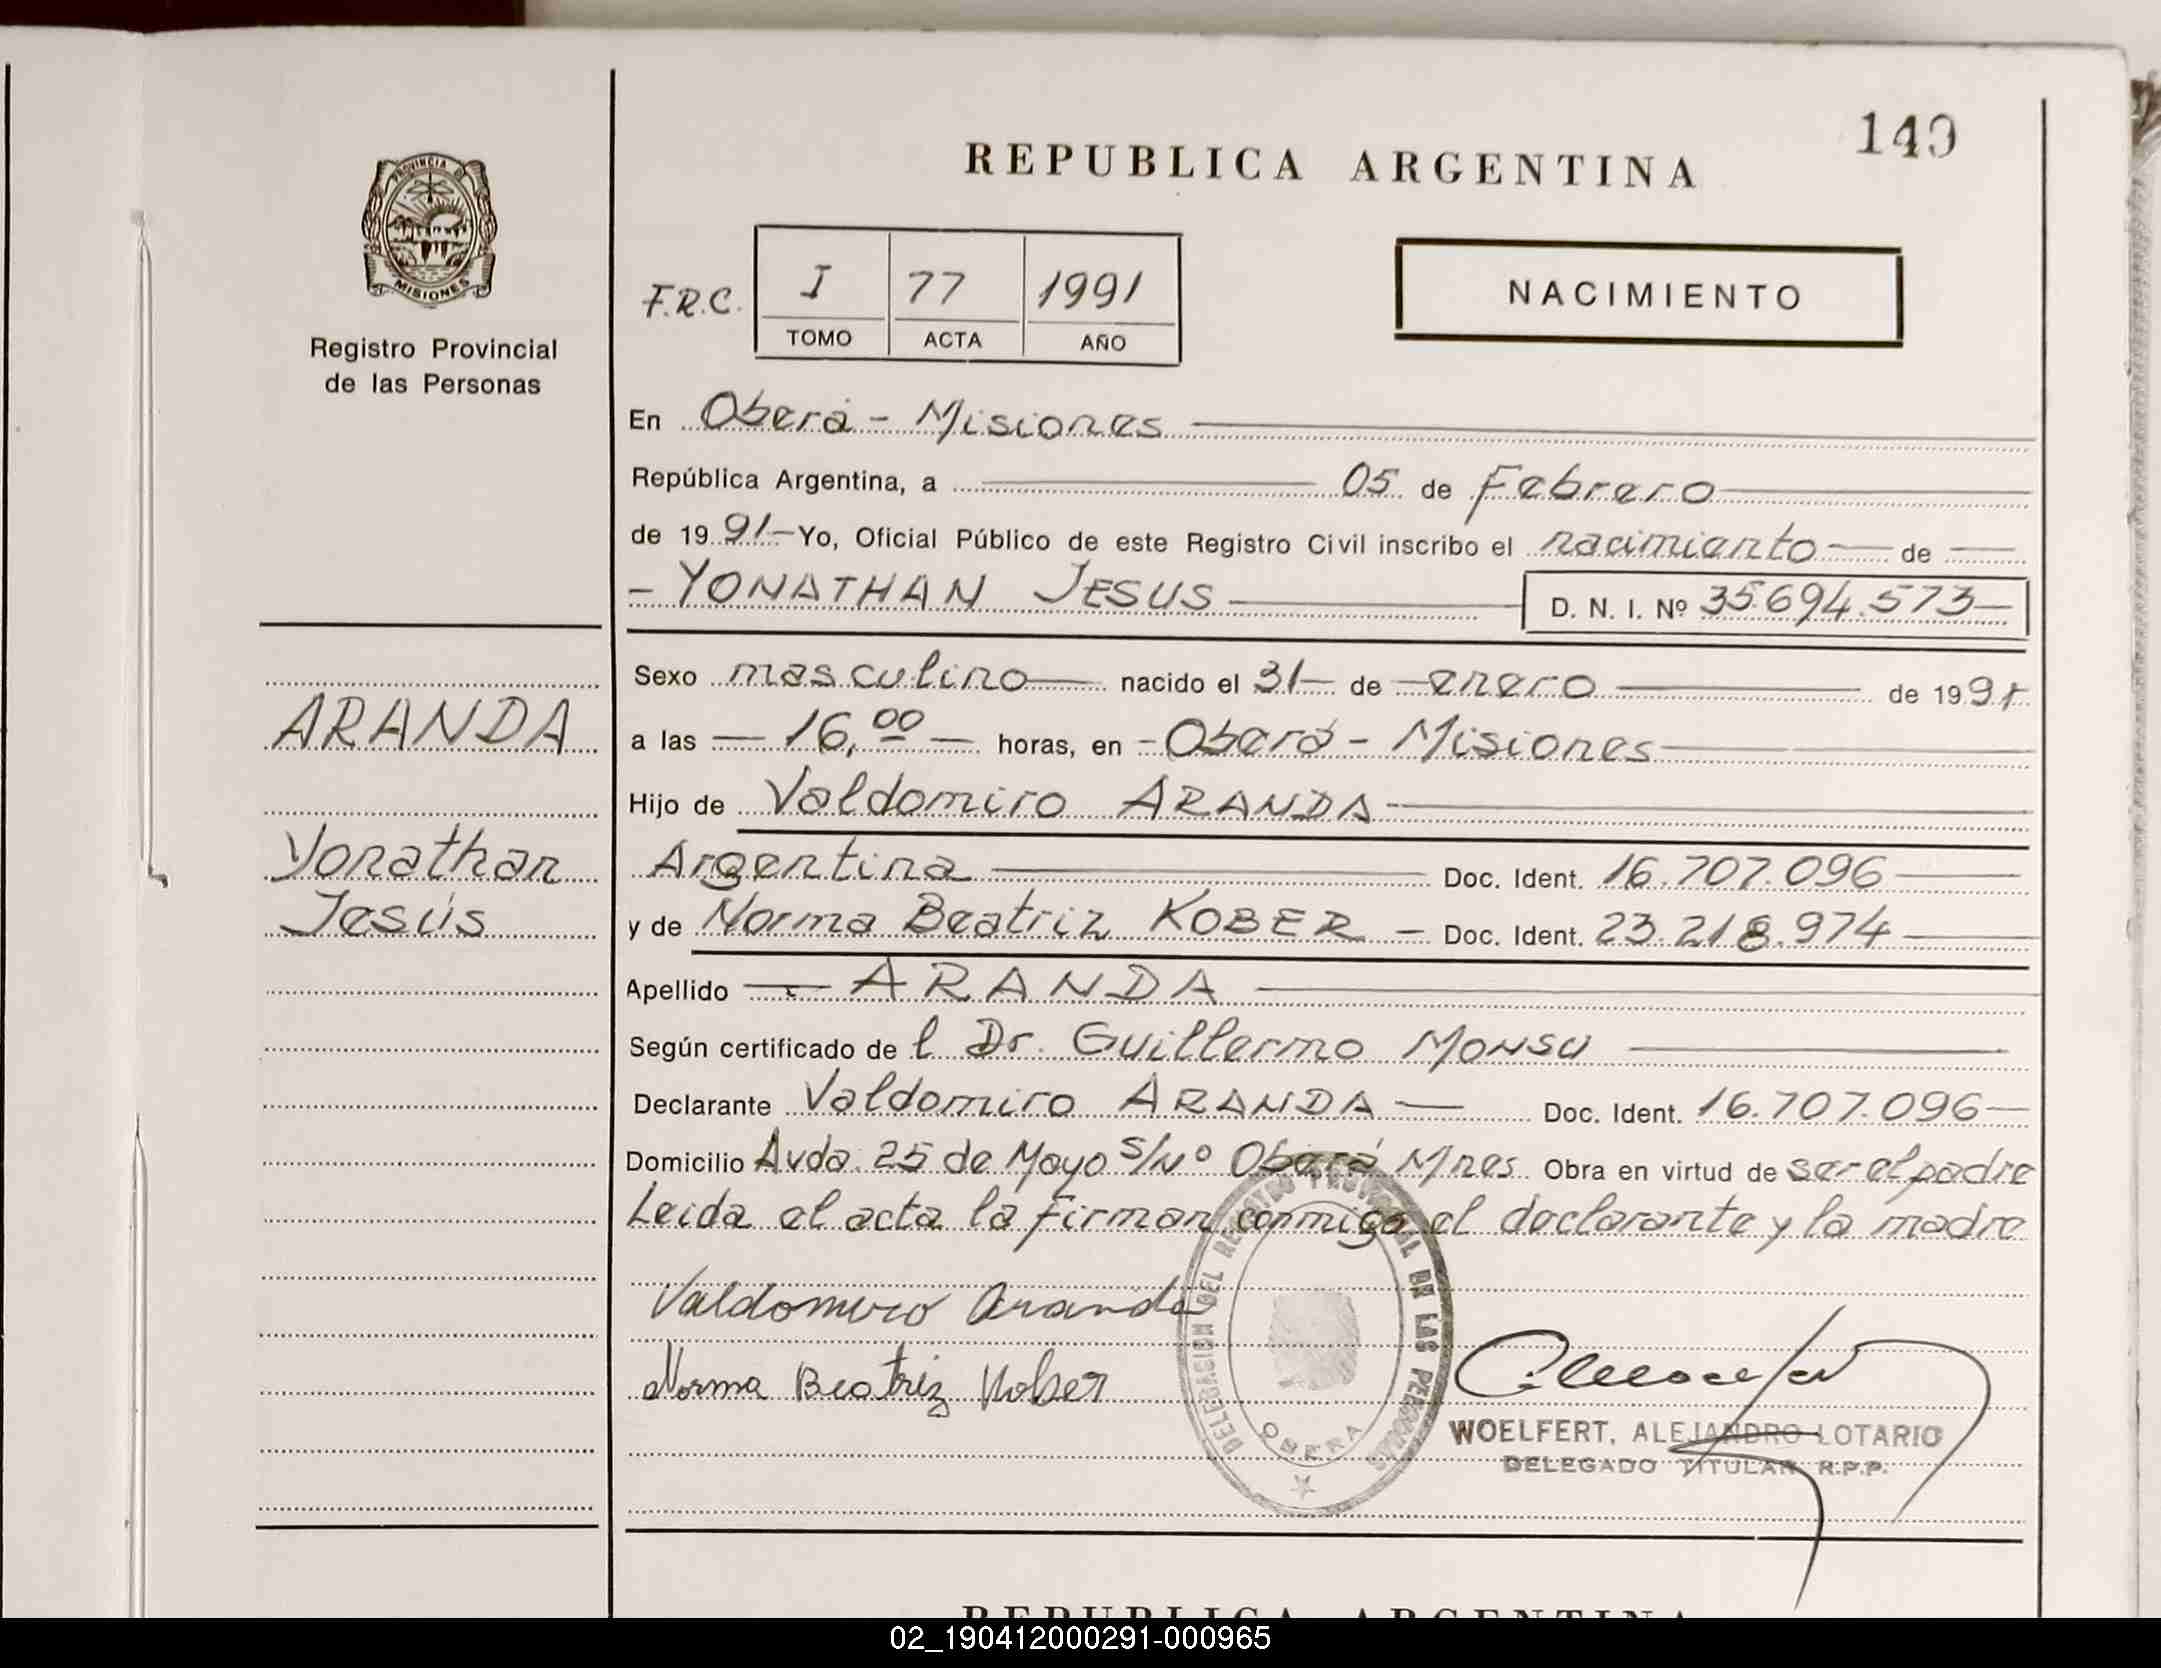 140
REPUBLICA ARGENTINA
PROVINCIA DE
MISIONES
Registro Provincial
de las Personas
F.R.C. I 77 1991
TOMO ACTA AÑO
NACIMIENTO
En Oberá - Misiones
República Argentina, a 05 de Febrero
de 1991 - Yo, Oficial Público de este Registro Civil inscribo el nacimiento de
- YONATHAN JESUS D. N. I. Nº 35.694.573
ARANDA
Yonathan
Jesús
Sexo masculino nacido el 31 de enero de 1991
a las 16,00 horas, en - Oberá - Misiones
Hijo de Valdomiro ARANDA
Argentina Doc. Ident. 16.707.096
y de Norma Beatriz KOBER - Doc. Ident. 23.218.974
Apellido ARANDA
Según certificado de l Dr. Guillermo MONSU
Declarante Valdomiro ARANDA Doc. Ident. 16.707.096
Domicilio Avda. 25 de Mayo s/Nº Oberá Mnes. Obra en virtud de ser el padre
Leida el acta la firman conmigo el declarante y la madre
Valdomiro Aranda
Norma Beatriz Kober
DELEGACION DEL REGISTRO PROVINCIAL DE LAS PERSONAS
OBERA
WOELFERT, ALEJANDRO LOTARIO
DELEGADO TITULAR R.P.P.
REPUBLICA ARGENTINA
02_190412000291-000965